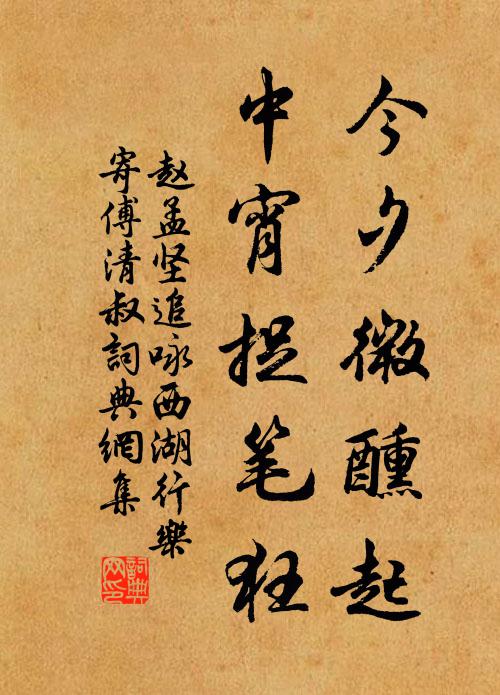 今夕微醺起
中宵捉笔狂
赵孟坚追咏西湖行樂
寄傅清叔詞典網集
詞典网印